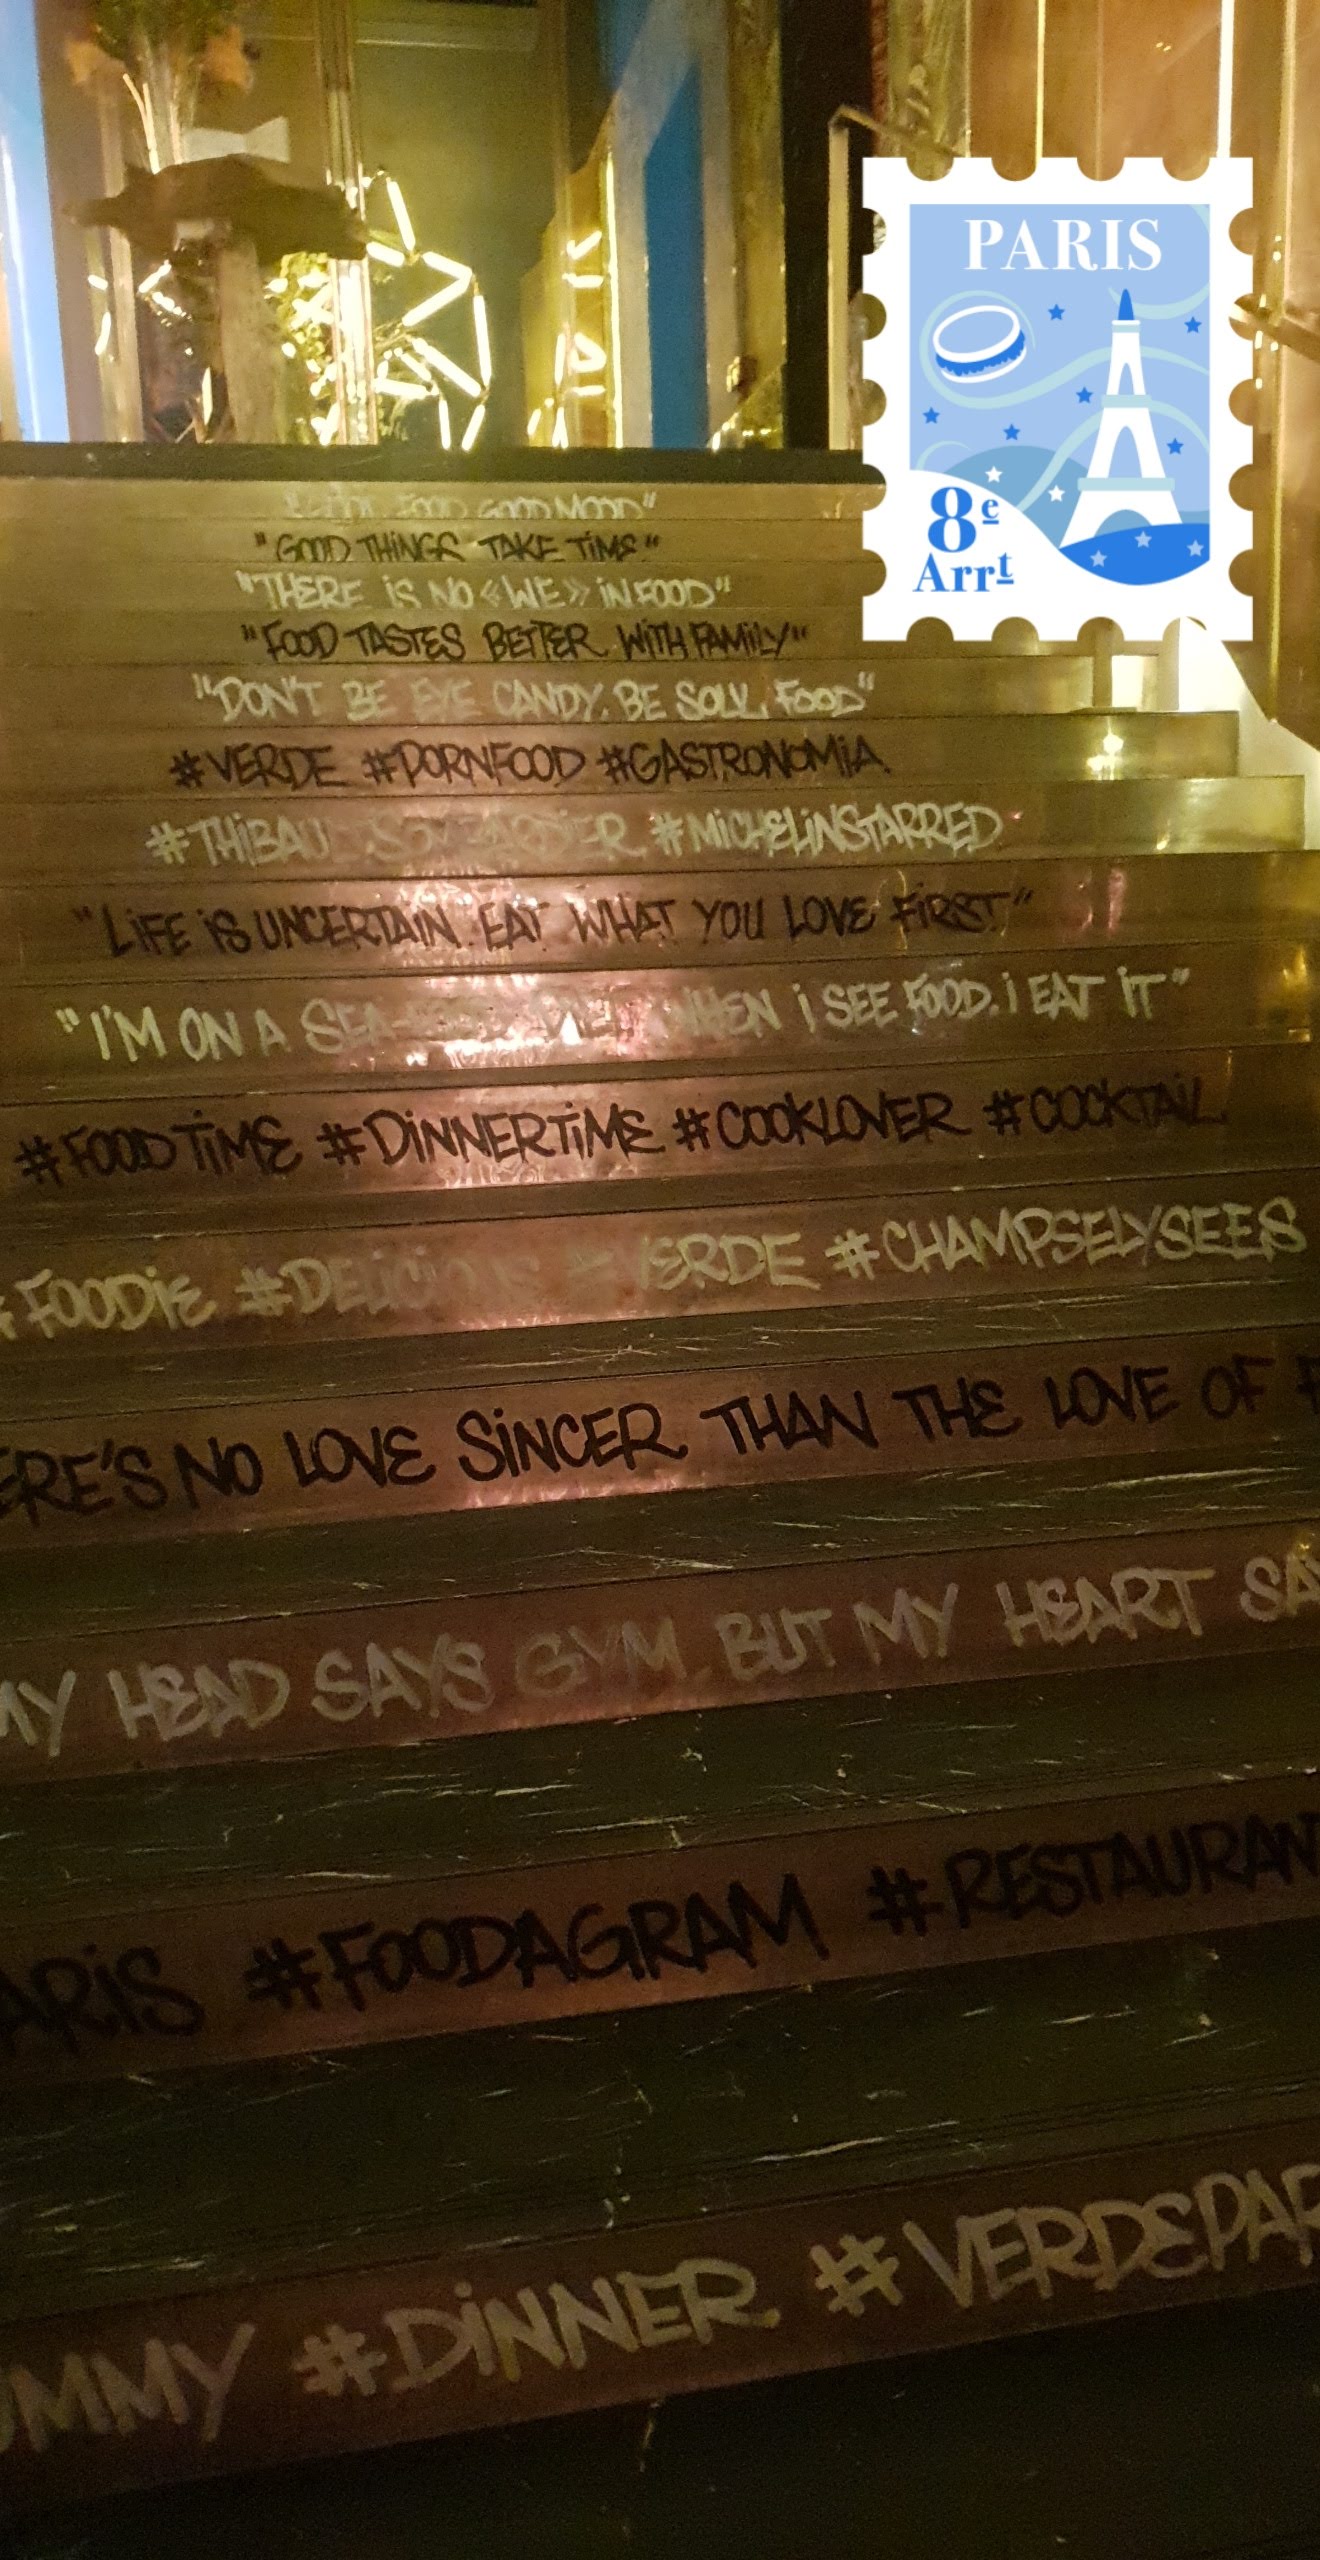 PARIS
8e
Arrt
FOOD GOOD MOOD"
"GOOD THINGS TAKE TIME"
"THERE IS NO «WE» IN FOOD"
"FOOD TASTES BETTER WITH FAMILY"
"DON'T BE EYE CANDY, BE SOUL FOOD"
#VERDE #PORNFOOD #GASTRONOMIA
#MICHELINSTARRED
"LIFE IS UNCERTAIN. EAT WHAT YOU LOVE FIRST"
"I'M ON A SEA- WHEN I SEE FOOD. I EAT IT"
#FOODTIME #DINNERTIME #COOKLOVER #COCKTAIL
#FOODIE #DELICIOUS #VERDE #CHAMPSELYSEES
ERE'S NO LOVE SINCER THAN THE LOVE OF F
MY HEAD SAYS GYM BUT MY HEART SA
ARIS #FOODAGRAM #RESTAURAN
UMMY #DINNER #VERDEPAR